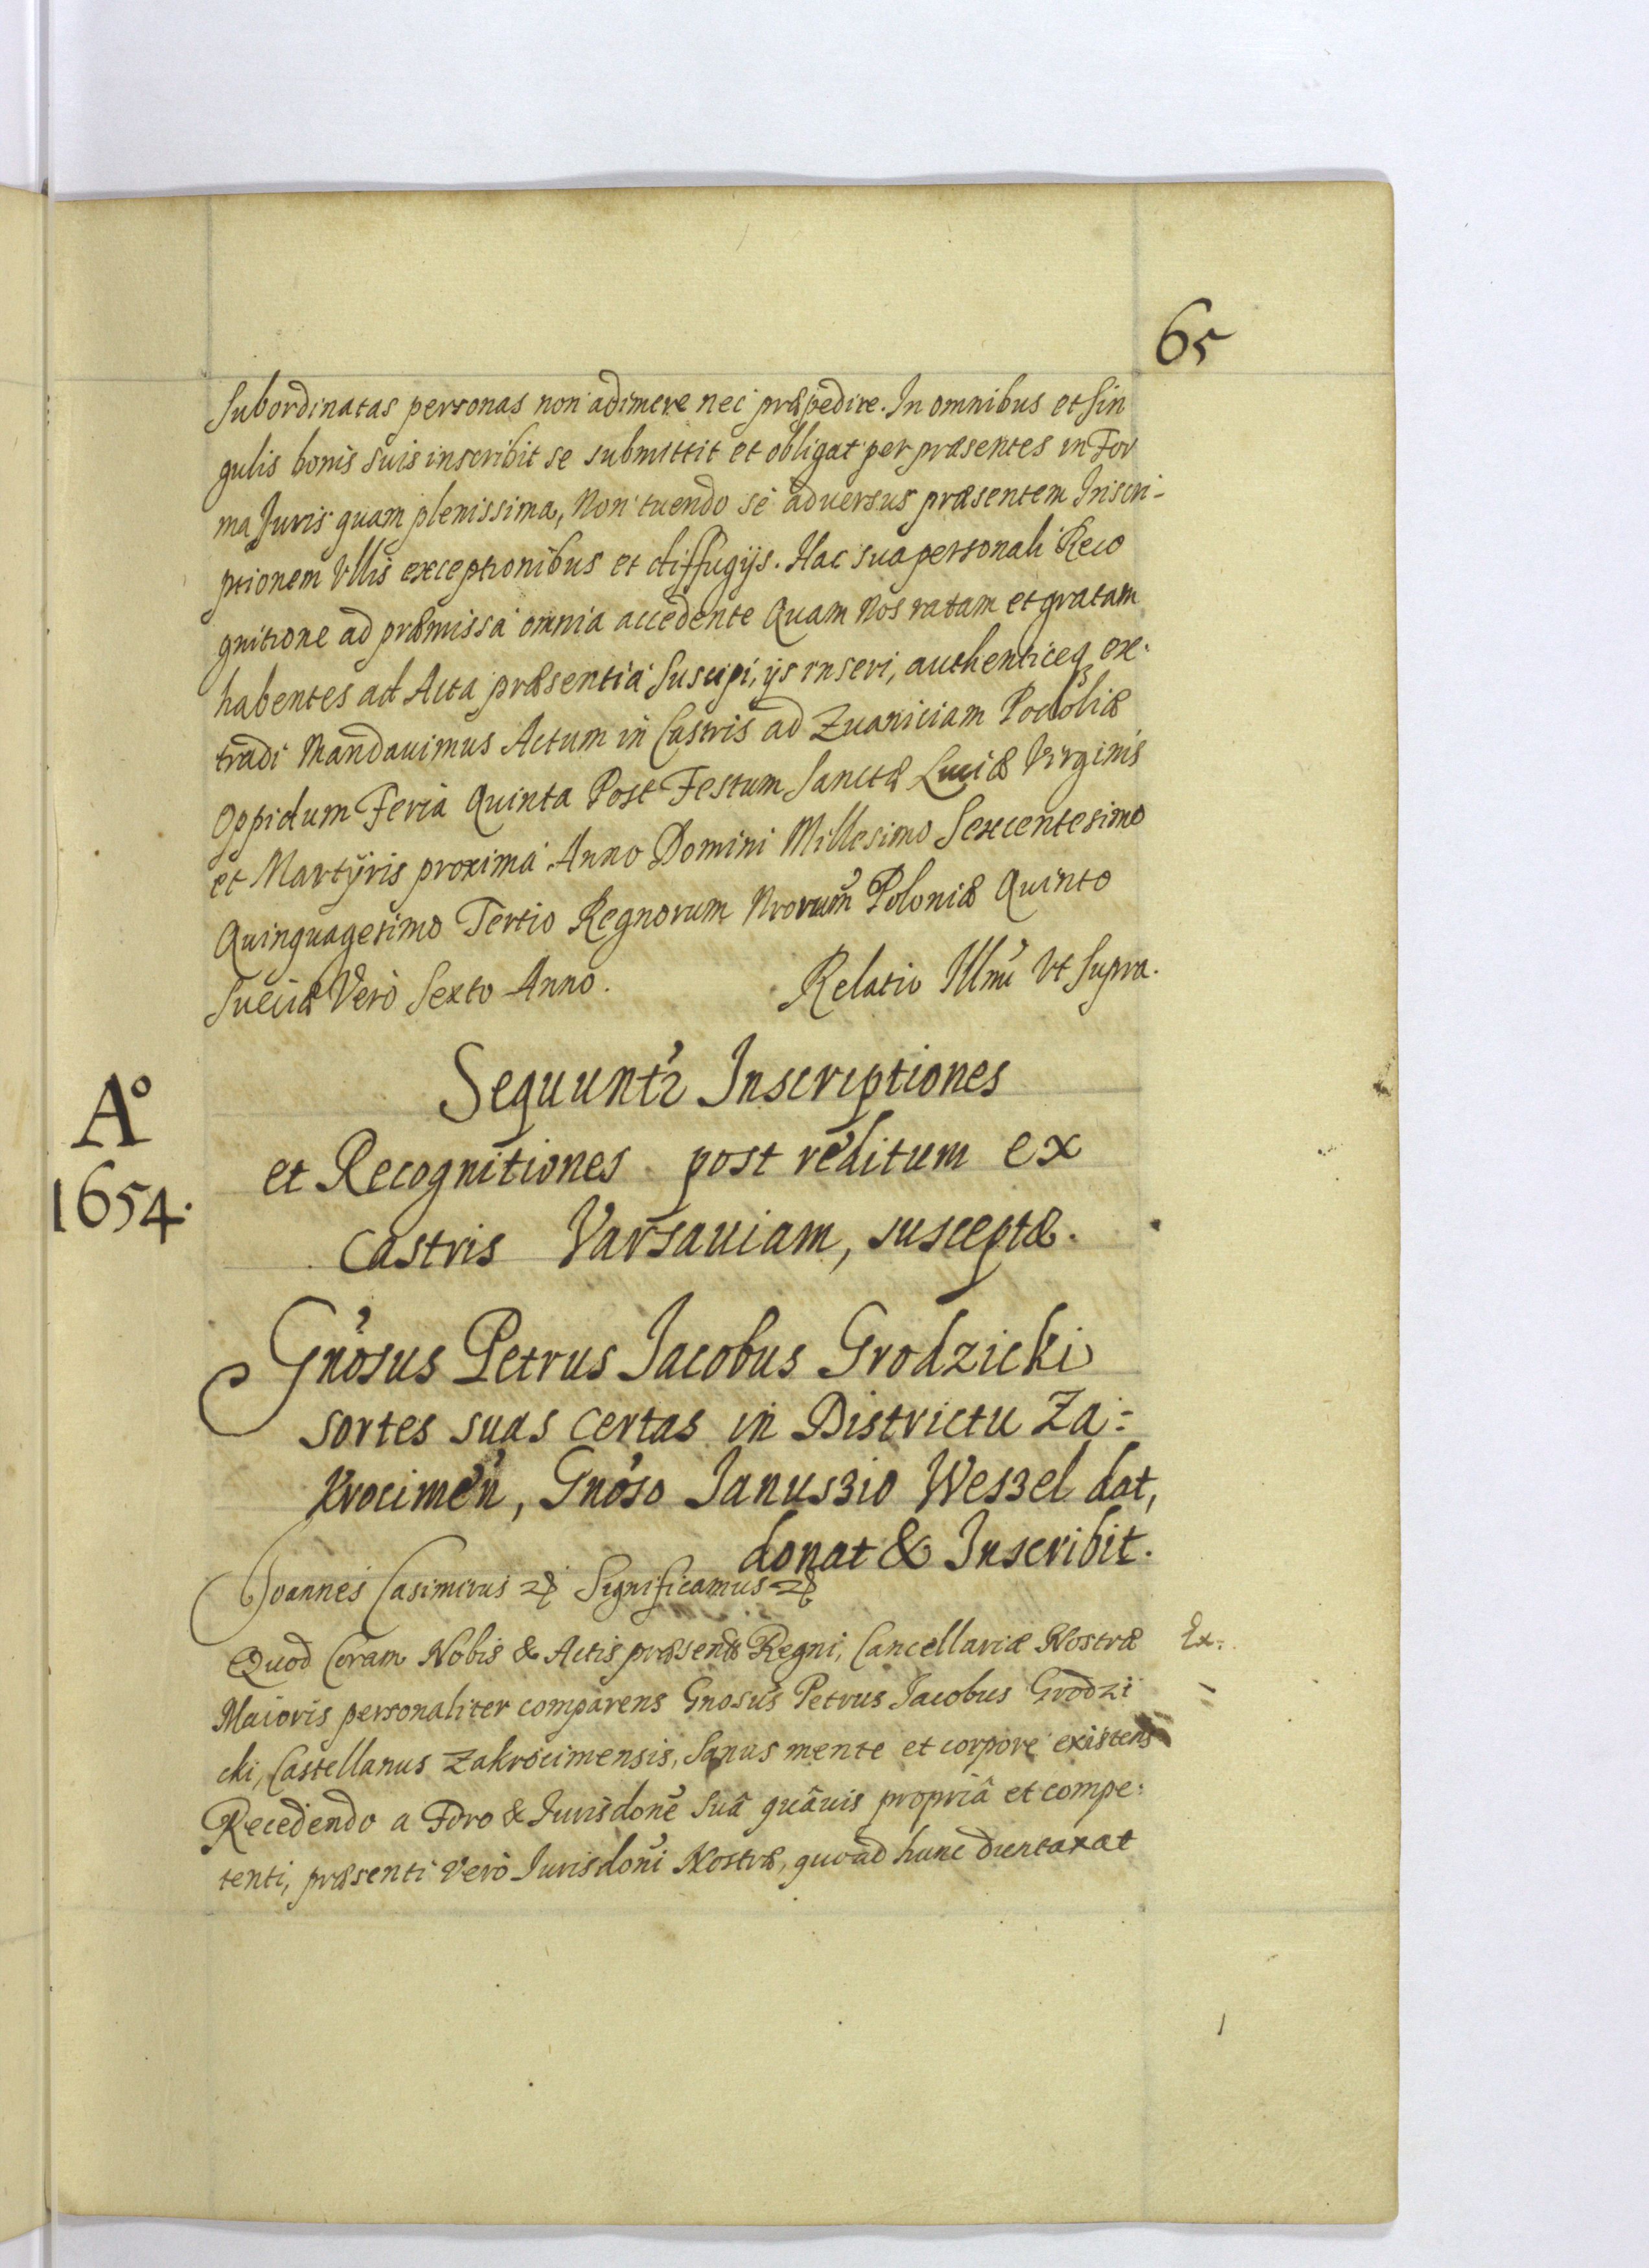 65
Subordinatas personas non adimere nec præpedire. In omnibus et Sin
gulis bonis Suis inscribit se submittit et obligat per præsentes in For
ma Juris quam plenissima, Non tuendo se adversus præsentem Inscri-
ptionem Vllis exceptionibus et diffugijs. Hac sua personali Reco
gnitione ad præmissa omnia accedente Quam Nos ratam et gratam
habentes ad Acta præsentia Suscipi, ijs inseri, authenticeq₃ ex-
tradi Mandavimus Actum in Castris ad Zuaniciam Podoliæ
Oppidum Feria Quinta Post Festum Sanctæ Luciæ Virginis
et Martÿris proxima Anno Domini Millesimo Sexcentesimo
Quinquagesimo Tertio Regnorum Nrorum Poloniæ Quinto
Sueciæ Vero Sexto Anno. Relatio Illmi Vt Supra.
Sequuntr Inscriptiones
et Recognitiones post reditum ex
castris Varsaviam, susceptæ.
A°
1654.
Gnosus Petrus Jacobus Grodzicki
sortes suas certas in Districtu Za:
krocimen, Gnoso Januszio Weszel dat,
donat & Inscribit.
Joannes Casimirus Significamus
Quod Coram Nobis & Actis præsentb Regni, Cancellariæ Nostræ
Ex.
Maioris personaliter comparens Gnosus Petrus Jacobus Grodzi
cki, Castellanus Zakrocimensis, Sanus mente et corpore existens
Recedendo a Foro & Jurisdone Suâ quâvis propriâ et compe:
tenti, præsenti vero Jurisdoni Nostræ, quoad hunc duntaxat